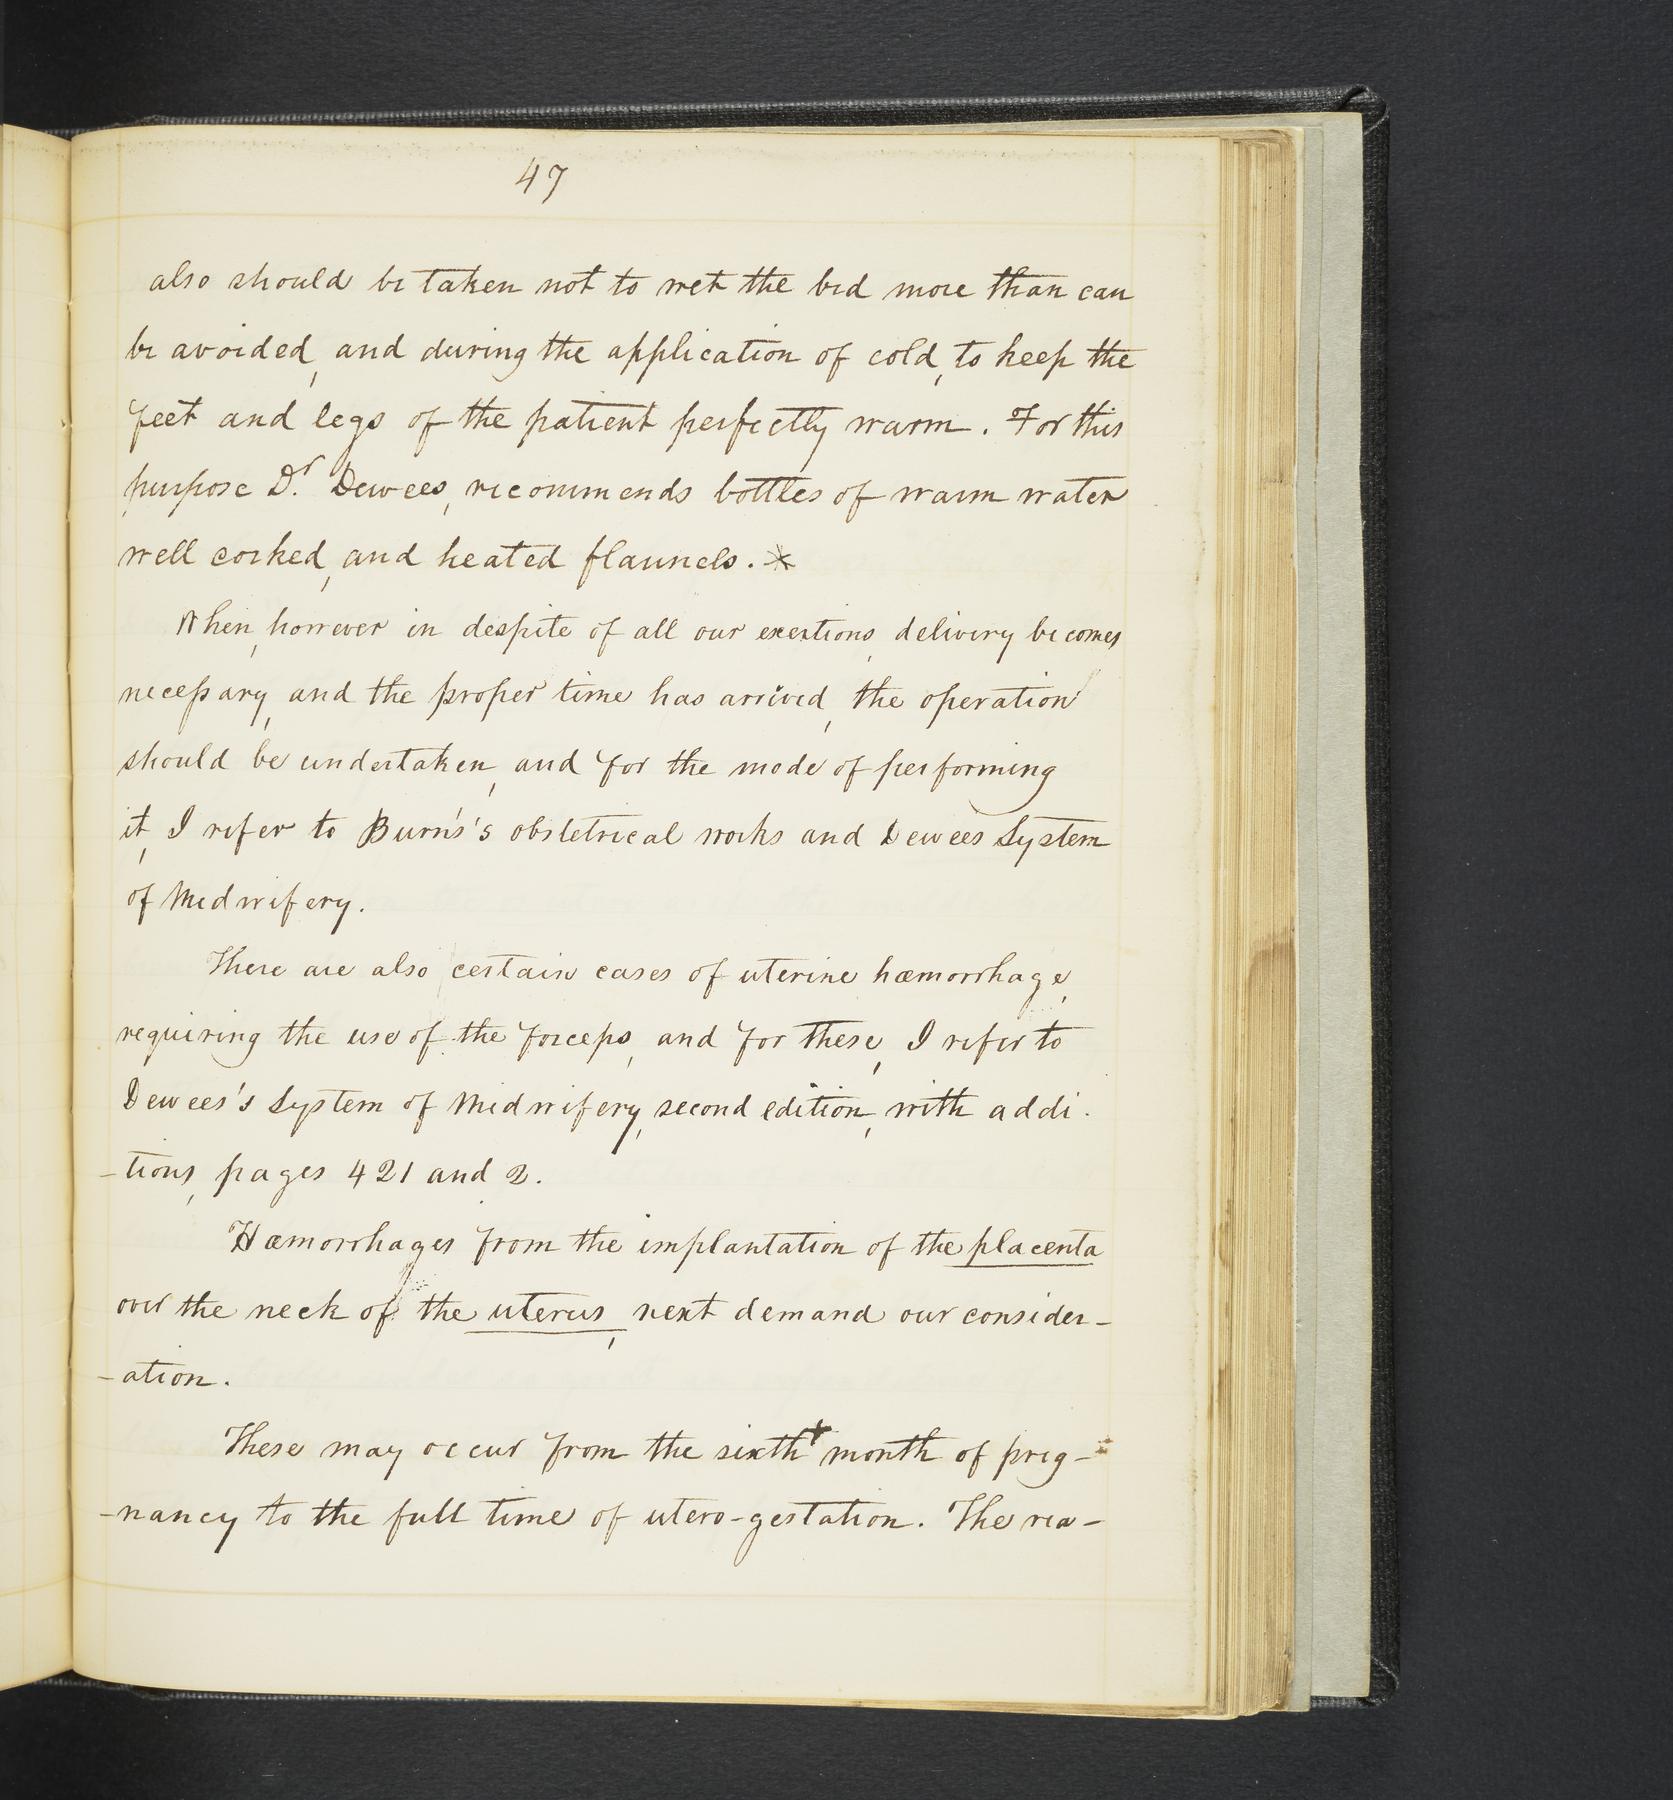 47
also should be taken not to wet the bed more than can
be avoided, and during the application of cold, to keep the
feet and legs of the patient perfectly warm. For this
purpose Dr. Dewees, recommends bottles of warm water
well corked, and heated flannels. *
When, however in despite of all our exertions, delivery becomes
necessary, and the proper time has arrived, the operation
should be undertaken, and for the mode of performing
it, I refer to Burns's obstetrical works and Dewees System
of Midwifery.
There are also certain cases of uterine hæmorrhage,
requiring the use of the forceps, and for these, I refer to
Dewees's System of Midwifery, second edition, with addi-
-tions, pages 421 and 2.
Hæmorrhages from the implantation of the placenta
over the neck of the uterus, next demand our consider-
-ation.
These may occur from the sixth+ month of preg-
-nancy to the full time of utero-gestation. The rea-